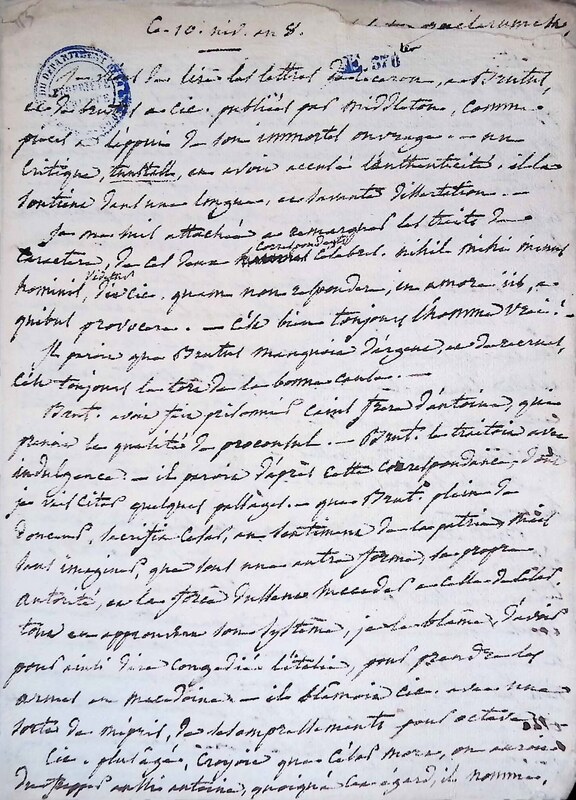 Ce 10. niv. an 8.
Je viens de lire les lettres de Ciceron, a Brutus,
et de brutus a cic. publiées par middleton, comme
pieces a l'appui de son immortel ouvrage. — un
Critique, tunstall, en avoit accusé l'authenticité. il la
soutient dans une longue, et savante dissertation. —
Je me suis attachée a remarquer les traits de
Caractere, de ces deux correspondants celebres. nihil mihi minus
hominis videtur, dit cic. quam non respondere, in amore iis, a
quibus provocere. — c'est bien toujours l'homme vrai! —
Il paroit que Brutus manquoit d'argent, et de recrues,
c'est toujours le tort de la bonne cause. —
Brut. avoit fait prisonnier Caius frere d'antoine, qui
prenoit la qualité de proconsul. — Brut. le traitoit avec
indulgence. — il paroit d'après cette correspondance, dont
je vais citer quelques passages. — que Brut. plein de
douceur, sacrifia César, au sentiment de la patrie, mais
sans imaginer, que sous une autre forme, sa propre
autorité, et la force dussent succeder a celle de César
tout en approuvant son systême, je le blâme, d'avoir
pour ainsi dire congédié l'italie, pour prendre les
armes en macédoine. — il blâmoit cic. avec une
sorte de mépris, de ses empressements pour octave.
Cic. plus âgé, croyoit que César mort, on auroit
du frapper aussi antoine, quoiqu'a cet egard, il nomme,